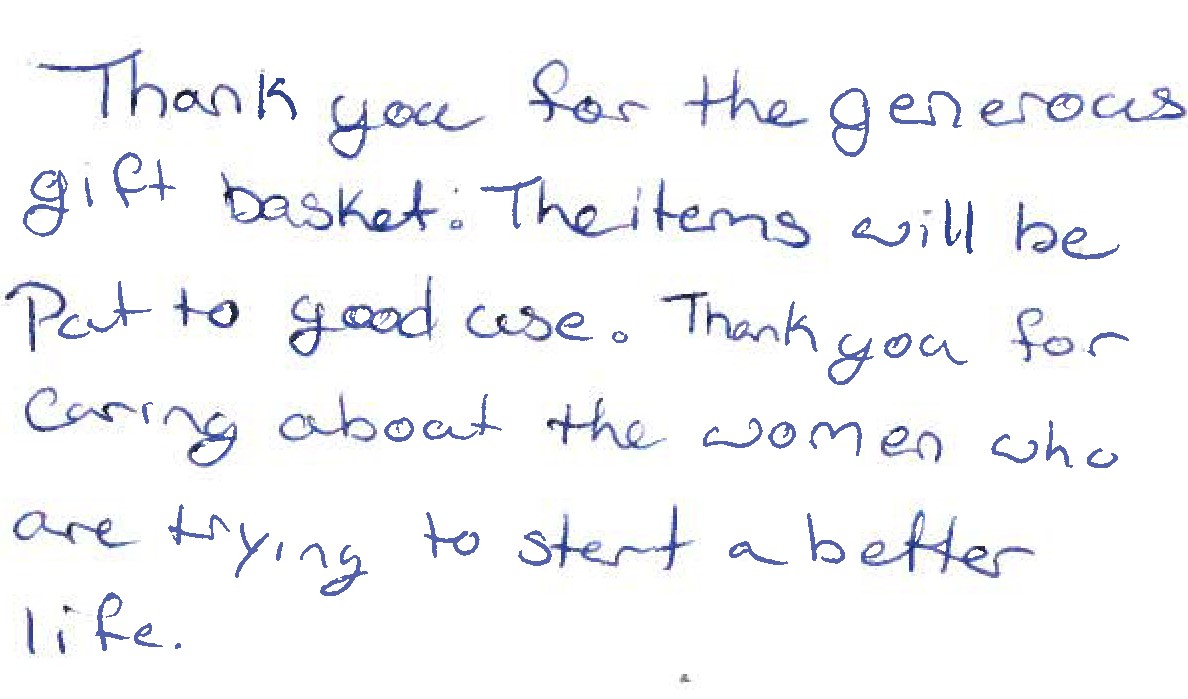 Thank you for the generous
gift basket. The items will be
Put to good use. Thank you for
caring about the women who
are trying to start a better
life.